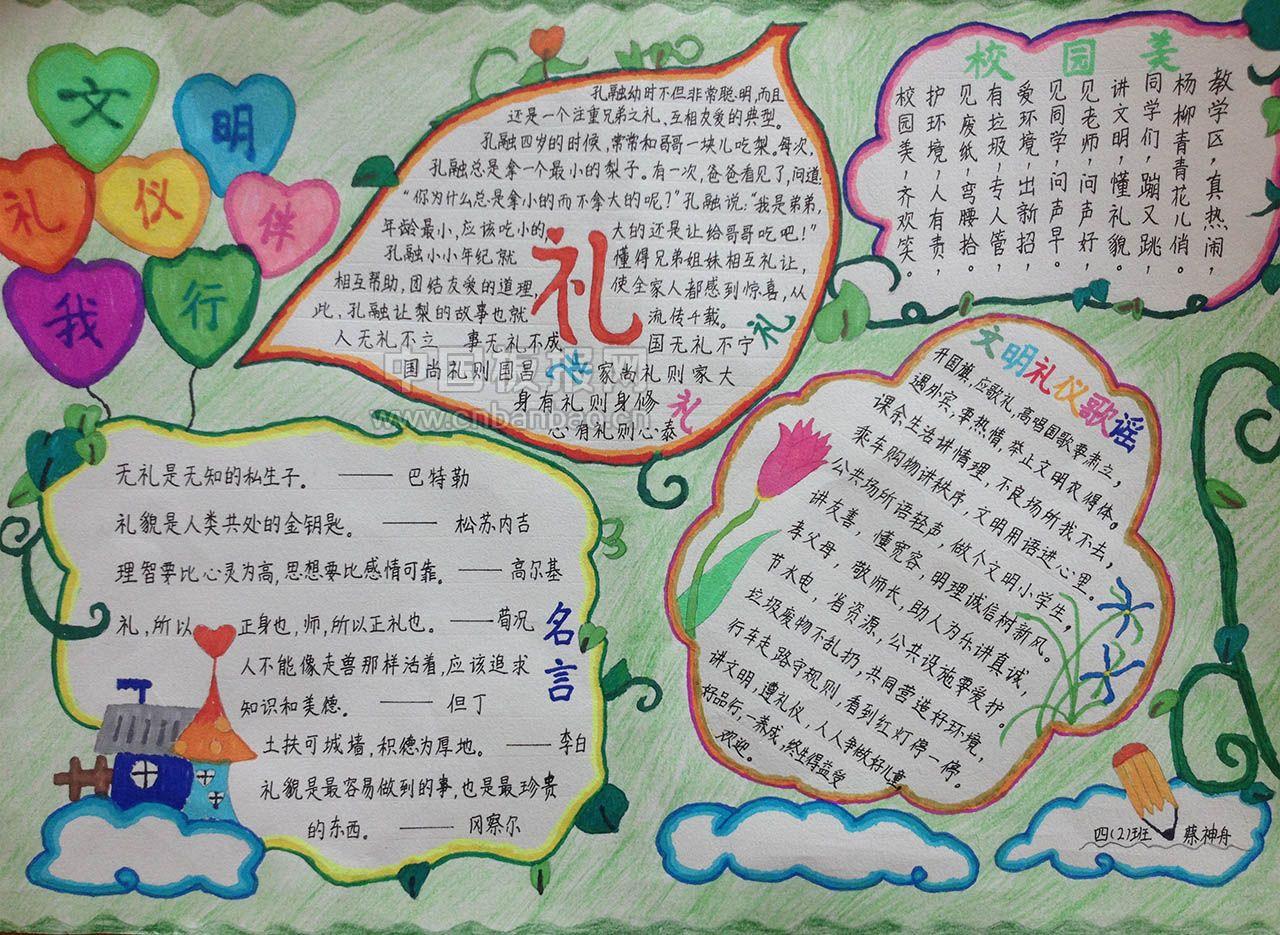 文明
礼仪伴
我行
孔融幼时不但非常聪明,而且
还是一个注重兄弟之礼、互相友爱的典型。
孔融四岁的时候,常常和哥哥一块儿吃梨。每次,
孔融总是拿一个最小的梨子。有一次,爸爸看见了,问道:
“你为什么总是拿小的而不拿大的呢?”孔融说:“我是弟弟,
年龄最小,应该吃小的,大的还是让给哥哥吃吧!”
孔融小小年纪就懂得兄弟姐妹相互礼让,
相互帮助,团结友爱的道理,使全家人都感到惊喜,从
此、孔融让梨的故事也就流传千载。
礼
人无礼不立 事无礼不成 国无礼不宁
国尚礼则国昌 家尚礼则家大
身有礼则身修
心有礼则心泰
礼
礼
中国板报网
www.cnbanbao.cn
校园美
教学区,真热闹,
杨柳青青花儿俏。
同学们,蹦又跳,
讲文明,懂礼貌。
见老师,问声好,
见同学,问声早。
爱环境,出新招,
有垃圾,专人管,
见废纸,弯腰拾。
护环境,人有责,
校园美,齐欢笑。
无礼是无知的私生子。——巴特勒
礼貌是人类共处的金钥匙。——松苏内吉
理智要比心灵为高,思想要比感情可靠。——高尔基
礼,所以正身也,师,所以正礼也。——荀况
人不能像走兽那样活着,应该追求
知识和美德。——但丁
土扶可城墙,积德为厚地。——李白
礼貌是最容易做到的事,也是最珍贵
的东西。——冈察尔
名言
文明礼仪歌谣
升国旗,应歌礼,高唱国歌要肃立,
遇外宾,要热情,举止文明衣得体。
课余生活讲情理,不良场所我不去,
乘车购物讲秩序,文明用语进心里。
公共场所语轻声,做个文明小学生,
讲友善,懂宽容,明理诚信树新风。
孝父母,敬师长,助人为乐讲真诚,
节水电,省资源,公共设施要爱护。
垃圾废物不乱扔,共同营造好环境,
行车走路守规则,看到红灯停一停。
讲文明,遵礼仪,人人争做好儿童,
好品行,一养成,终生得益受
欢迎。
四(2)班 蔡神舟